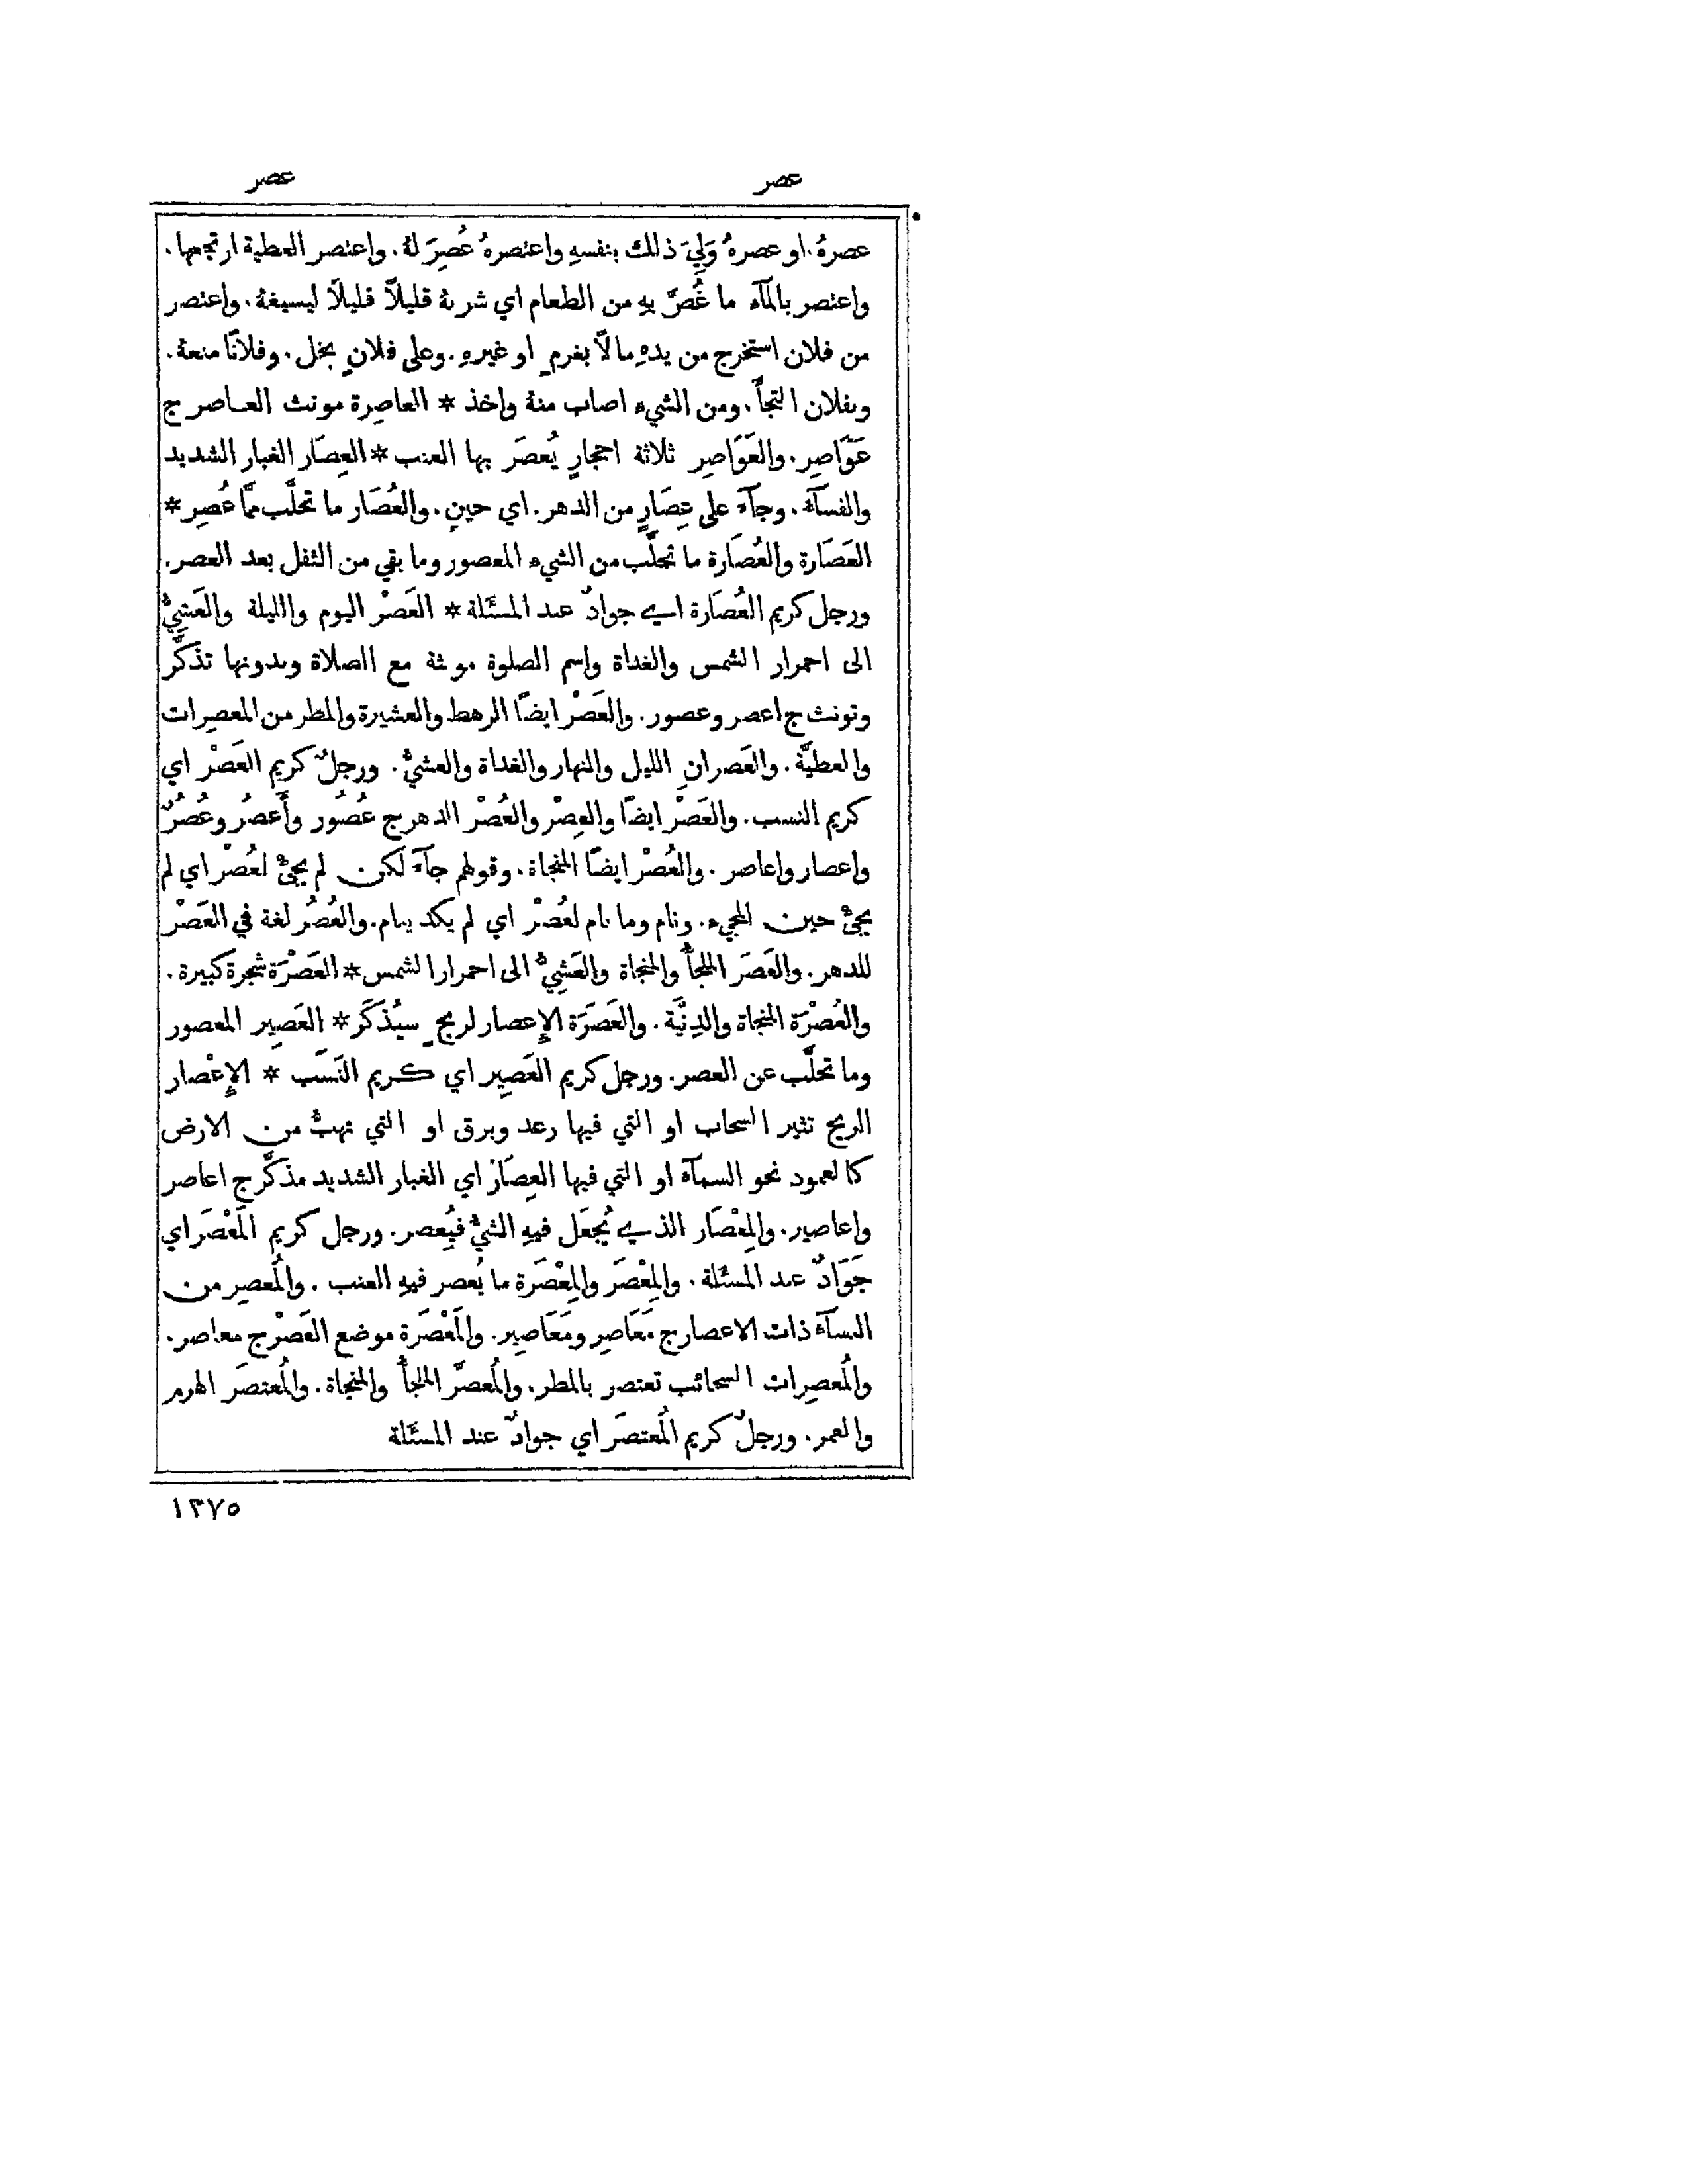 عصر عصر
عصرهُ. او عصرهُ وَلِيَ ذلك بنفسهِ واعتصرهُ عُصِرَ لهُ. واعتصر العطية ارتجعها.
واعتصر بالمآء ما غُصَّ بهِ من الطعام اي شربهُ قليلاً قليلاً ليسيغهُ. واعتصر
من فلان استخرج من يدهِ مالاً بغرمٍ او غيرهِ. وعلى فلانٍ بخل. وفلانًا منعهُ.
وبفلان التجأَ. ومن الشيء اصاب منهُ واخذ * العاصِرة مونث العاصر ج
عَوَاصِر. والعَوَاصِر ثلاثة احجارٍ يُعصَر بها العنب * العِصَار الغبار الشديد
والفسآء. وجآء على عِصَارٍ من الدهر. اي حينٍ. والعُصَار ما تحلَّب ممَّا عُصِر *
العَصَارة والعُصَارة ما تحلَّب من الشيء المعصور وما بقي من الثفل بعد العصر.
ورجل كريم العُصَارة اي جوادٌ عند المسئَلة * العَصْر اليوم والليلة والعَشِيُّ
الى احمرار الشمس والغداة واسم الصلوة مونثة مع الصلاة وبدونها تذكَّر
وتونث ج اعصر وعصور. والعَصْر ايضًا الرهط والعشيرة والمطر من المعصِرات
والعطيَّة. والعَصرانِ الليل والنهار والغداة والعشيُّ. ورجلٌ كريم العَصْر اي
كريم النسب. والعَصْر ايضًا والعِصْر والعُصْر الدهر ج عُصُور وأَعصُر وعُصُرٌ
واعصار واعاصر. والعُصْر ايضًا المنجاة. وقولهم جآء لكن لم يجئْ لعُصْر اي لم
يجئْ حين المجيء. ونام وما نام لعُصْر اي لم يكد ينام. والعُصُر لغة في العَصْر
للدهر. والعَصَر الملجأُ والمنجاة والعَشِيُّ الى احمرار الشمس * العَصْرَة شجرة كبيرة.
والعُصْرَة المنجاة والدِنْيَة. والعَصَرَة الإعصار لريحٍ سيُذكَر * العَصِير المعصور
وما تحلَّب عن العصر. ورجل كريم العَصِير اي كريم النَسَب * الإعْصار
الريح تثير السحاب او التي فيها رعد وبرق او التي تهبُّ من الارض
كالعمود نحو السمآء او التي فيها العِصَار اي الغبار الشديد مذكَّر ج اعاصر
واعاصير. والمِعْصَار الذي يُجعَل فيهِ الشيْ فيُعصر. ورجل كريم المَعْصَر اي
جَوَادٌ عند المسئَلة. والمِعْصَر والمِعْصَرة ما يُعصر فيهِ العنب. والمُعصِر من
السآء ذات الاعصار ج مَعَاصِر ومَعَاصِير. والمَعْصَرة موضع العَصْر ج معاصر.
والمُعصِرات السحائب تعتصر بالمطر. والمُعصَّر الملجأُ والمنجاة. والمُعتصَر الهرم
والعمر. ورجلٌ كريم المُعتصَر اي جوادٌ عند المسئَلة
١٣٧٥